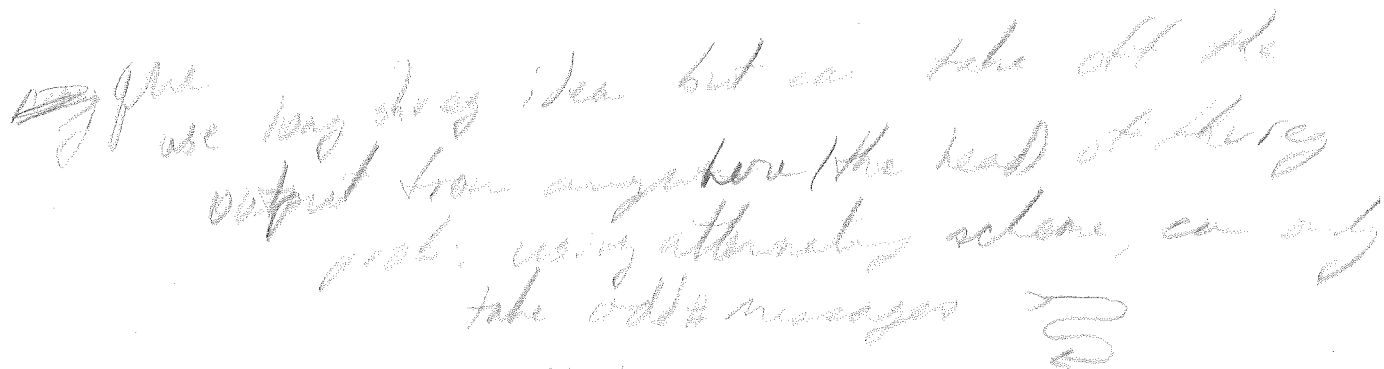 use long shreg idea but can take off the
output from anywhere / the head of the reg
prob: using alternating scheme, can only
take odd # messages